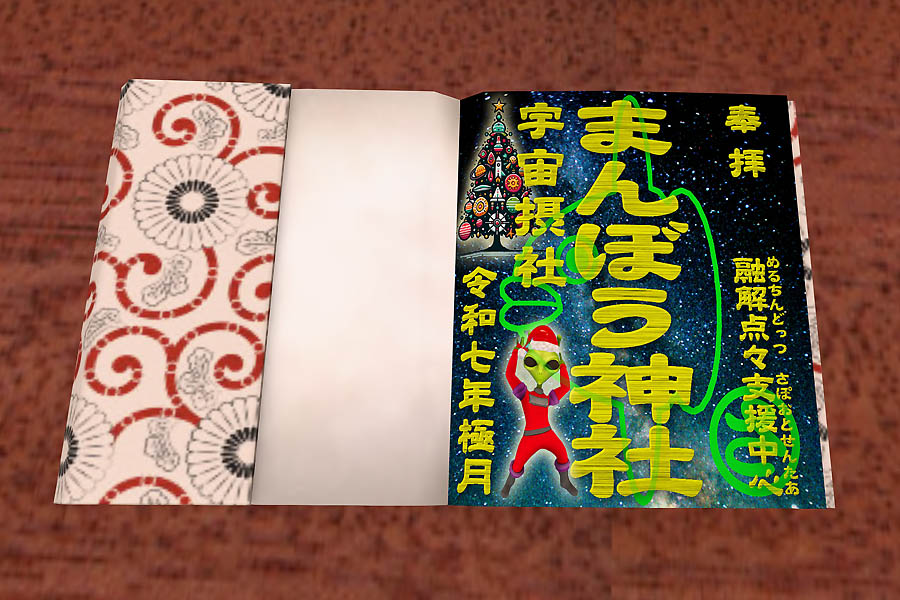 奉拝
めるちんどっつ さぽおとせんたあ
融解点々支援中心
まんぼう神社
宇宙摂社
令和七年極月